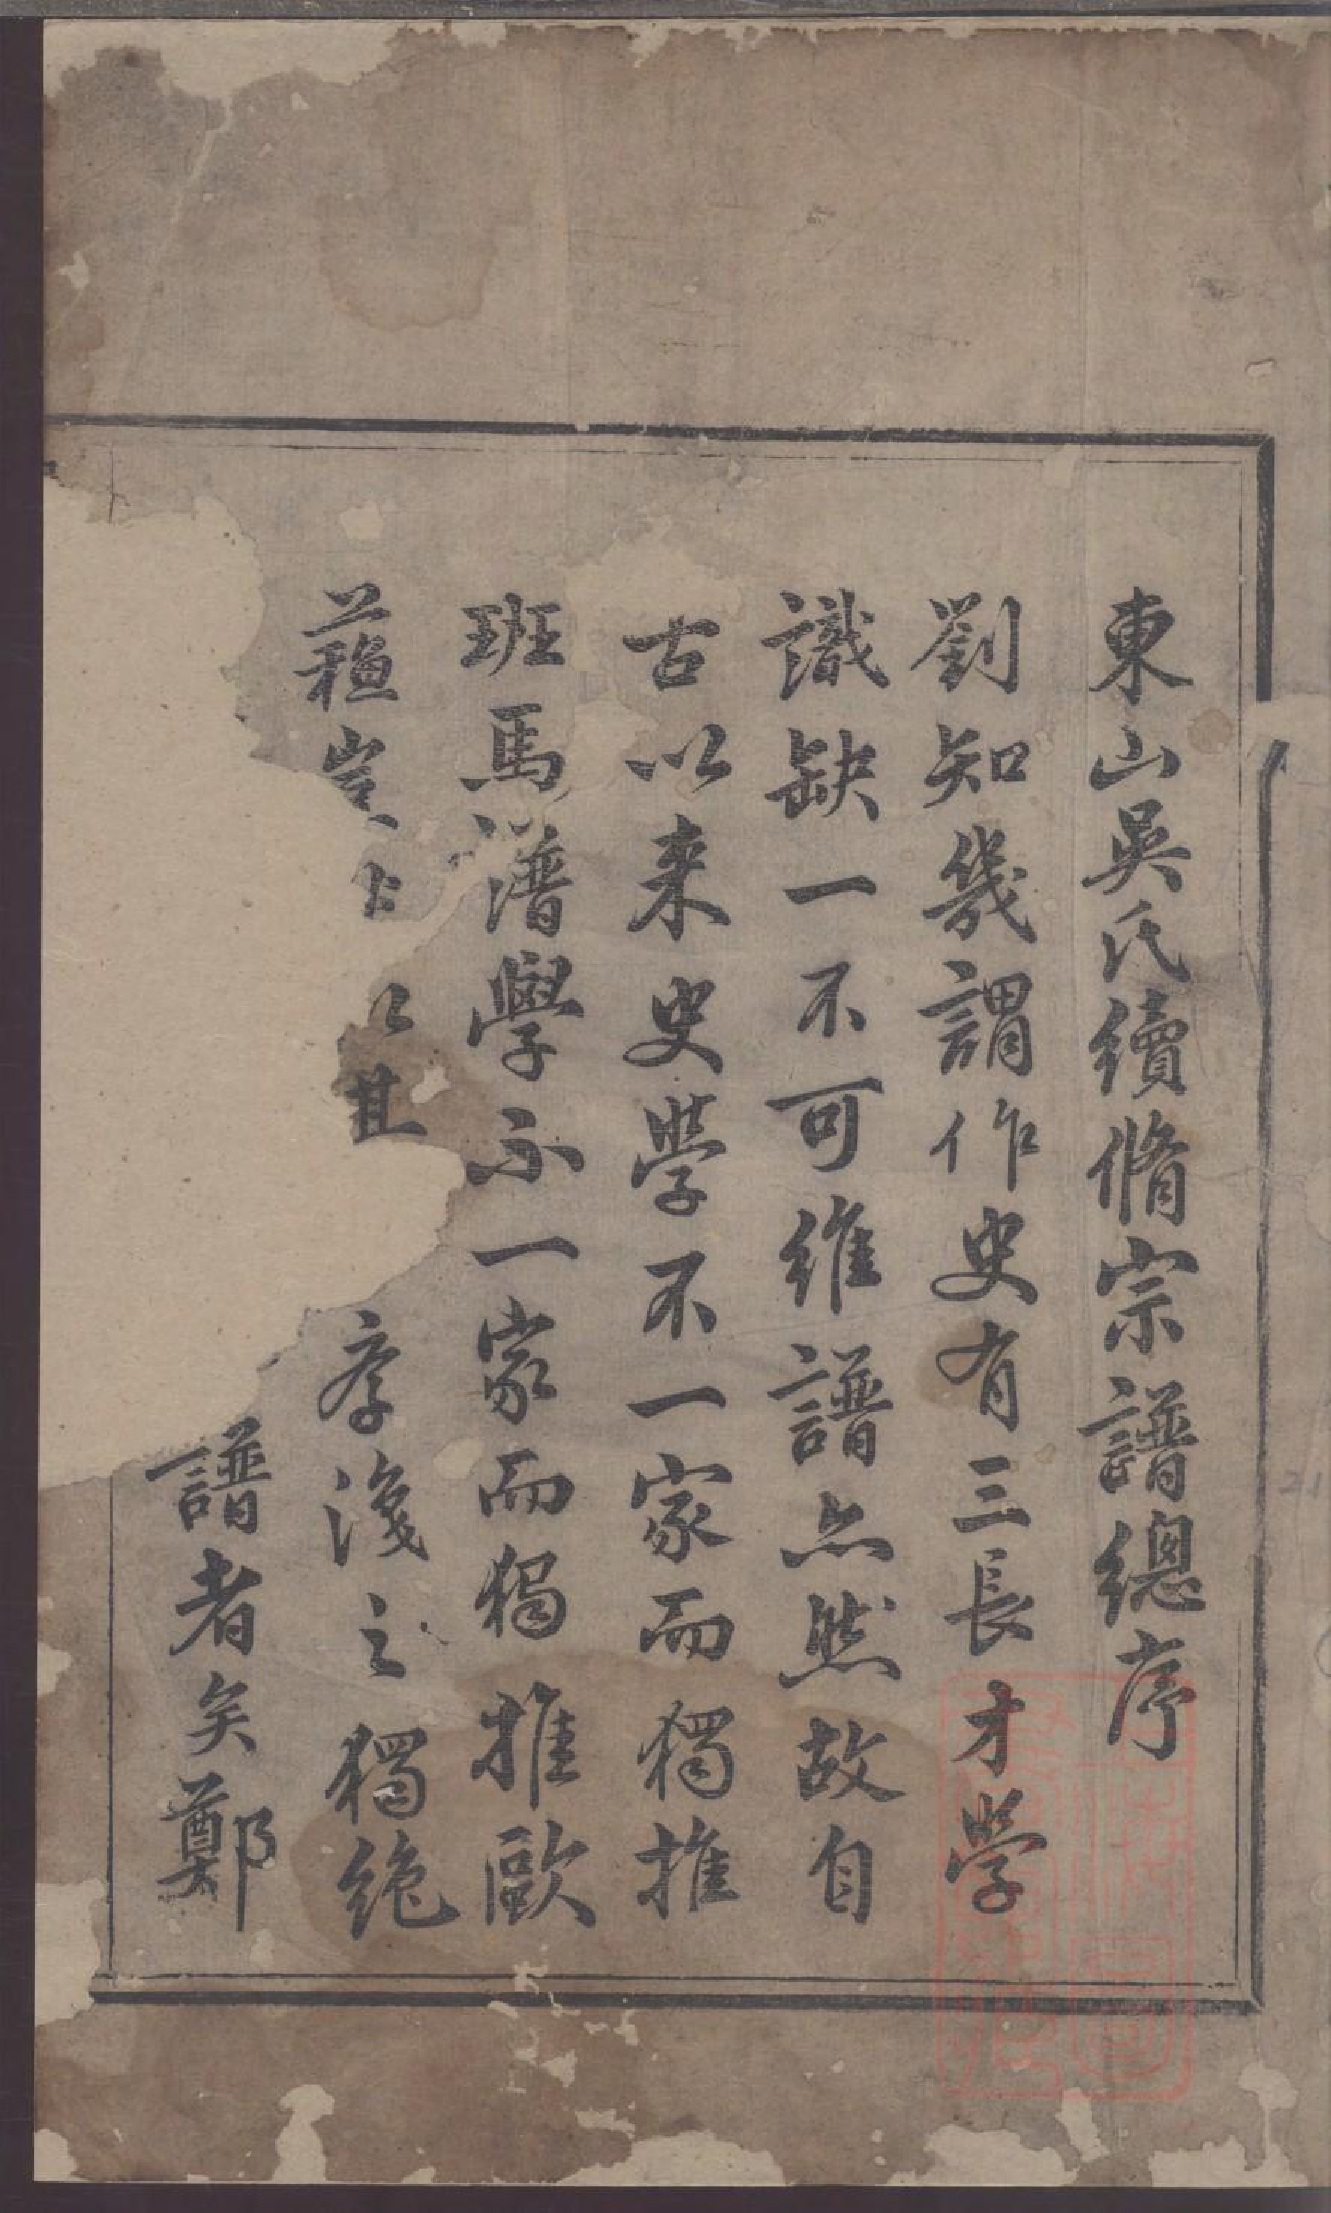 東山吳氏續脩宗譜總序
劉知幾謂作史有三長才學
識缺一不可維譜亦然故自
古以来史學不一家而獨推
班馬譜學不一家而獨推歐
蘓豈其孝淺之獨絶
譜者矣鄭